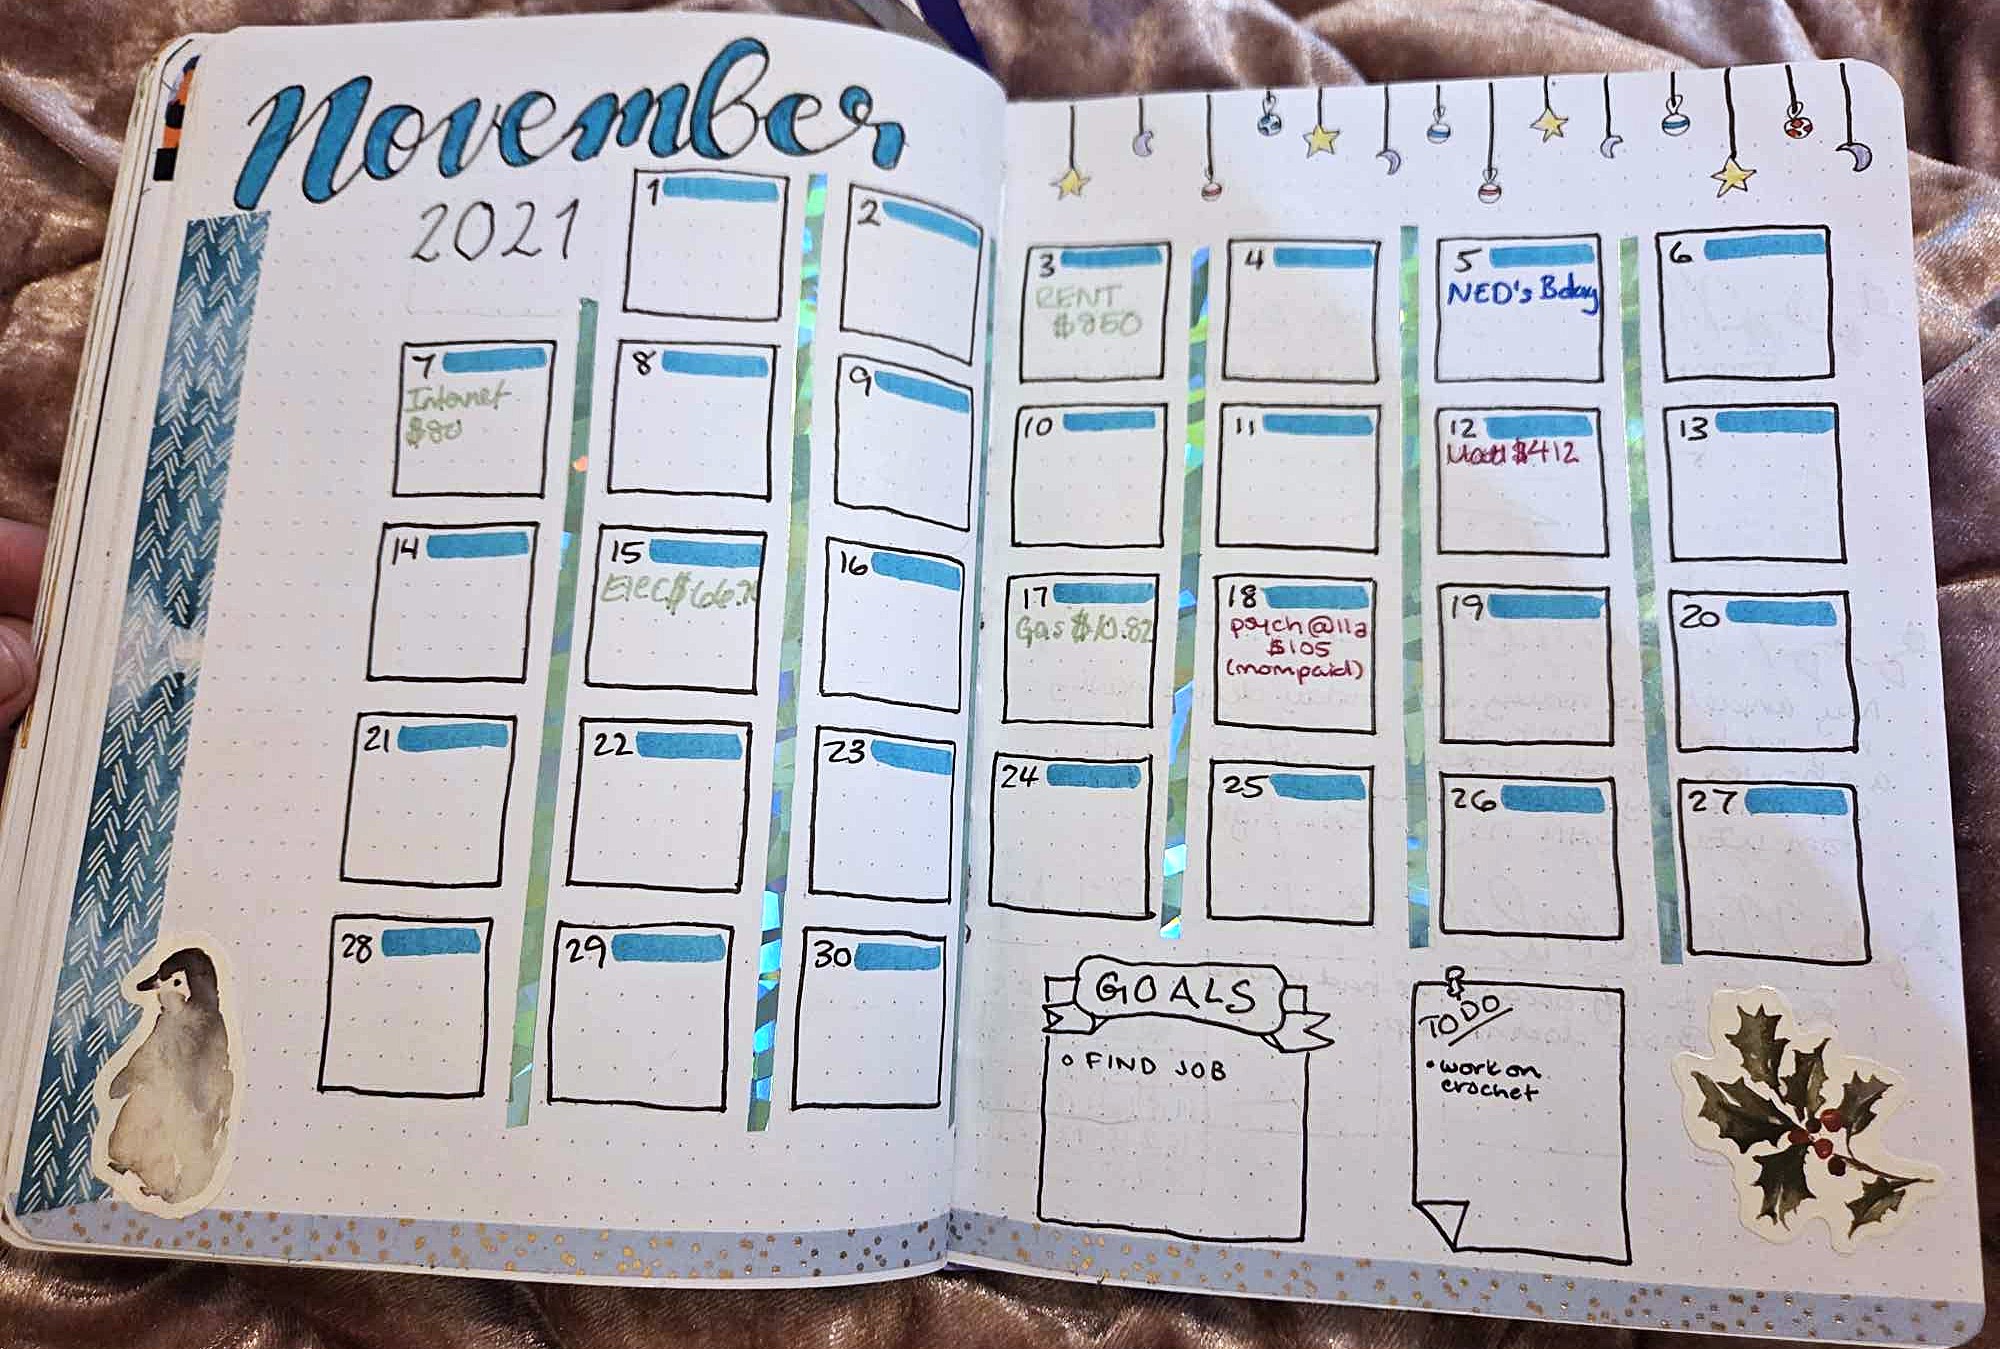 November
2021
1
2
3
RENT
$850
4
5
NED's Bday
6
7
Internet
$80
8
9
10
11
12
$412
13
14
15
Elec $66.
16
17
Gas $10.82
18
psych @ 11a
$105
(mom paid)
19
20
21
22
23
24
25
26
27
28
29
30
GOALS
FIND JOB
TO DO
• work on
crochet